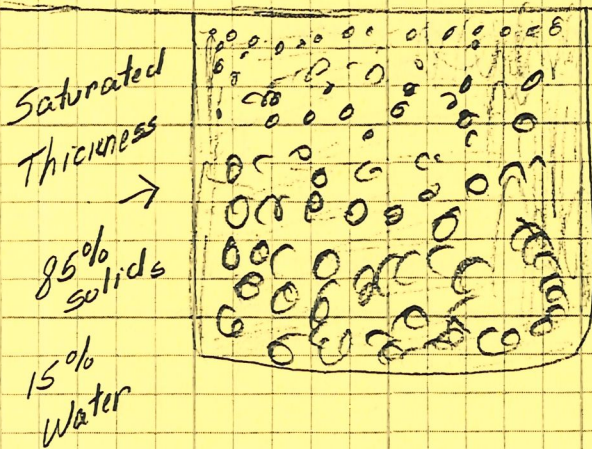 Saturated
Thickness
85%
solids
15%
Water